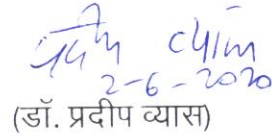 प्रदीप व्यास
2-6-2020
(डॉ. प्रदीप व्यास)